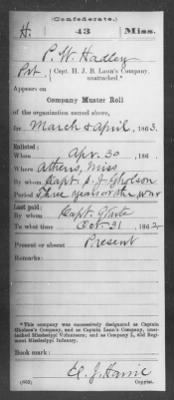 (Confederate.)
H. 43 Miss.
P. W. Hadley
Pvt, Capt. H. J. B. Lann's Company, unattached.*
Appears on
Company Muster Roll
of the organization named above,
for March & April, 1863.
Enlisted:
When Apr. 30, 186
Where Athens, Miss
By whom Capt. S. J. Gholson
Period Three years or the war
Last paid:
By whom Capt.
To what time Oct. 31, 1862.
Present or absent Present
Remarks:
*This company was successively designated as Captain
Gholson's Company, and as Captain Lann's Company, unat-
tached Mississippi Volunteers; and as Company I, 43d Regi-
ment Mississippi Infantry.
Book mark:
(642)
Copyist.